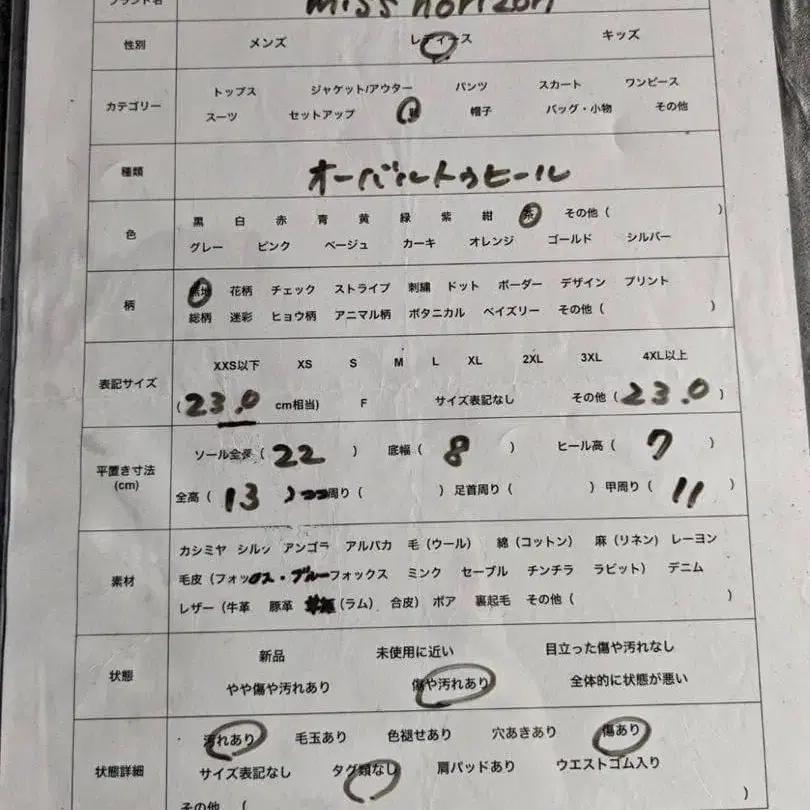 ブランド名 miss horizon
性別 メンズ レディース キッズ
カテゴリー
トップス ジャケット/アウター パンツ スカート ワンピース
スーツ セットアップ 帽子 バッグ・小物 その他
種類 オーバルトゥヒール
色
黒 白 赤 青 黄 緑 紫 紺 茶 その他 ( )
グレー ピンク ベージュ カーキ オレンジ ゴールド シルバー
柄
無地 花柄 チェック ストライプ 刺繍 ドット ボーダー デザイン プリント
総柄 迷彩 ヒョウ柄 アニマル柄 ボタニカル ペイズリー その他 ( )
表記サイズ
XXS以下 XS S M L XL 2XL 3XL 4XL以上
( 23.0 cm相当) F サイズ表記なし その他 ( 23.0 )
平置き寸法
(cm)
ソール全長 ( 22 ) 底幅 ( 8 ) ヒール高 ( 7 )
全高 ( 13 ) 周り ( ) 足首周り ( ) 甲周り ( 11 )
素材
カシミヤ シルク アンゴラ アルパカ 毛 (ウール) 綿 (コットン) 麻 (リネン) レーヨン
毛皮 (フォックス・ブルーフォックス ミンク セーブル チンチラ ラビット) デニム
レザー (牛革 豚革 (ラム) 合皮) ボア 裏起毛 その他 ( )
状態
新品 未使用に近い 目立った傷や汚れなし
やや傷や汚れあり 傷や汚れあり 全体的に状態が悪い
状態詳細
汚れあり 毛玉あり 色褪せあり 穴あきあり 傷あり
サイズ表記なし タグ類なし 肩パッドあり ウエストゴム入り
その他 ( )